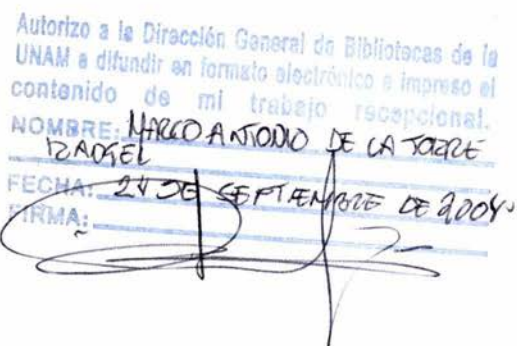 Autorizo a la Dirección General de Bibliotecas de la
UNAM a difundir en formato electrónico e impreso el
contenido de mi trabajo recepcional.
NOMBRE: MARCO ANTONIO DE LA TORRE
RANGEL
FECHA: 24 DE SEPTIEMBRE DE 2004
FIRMA: